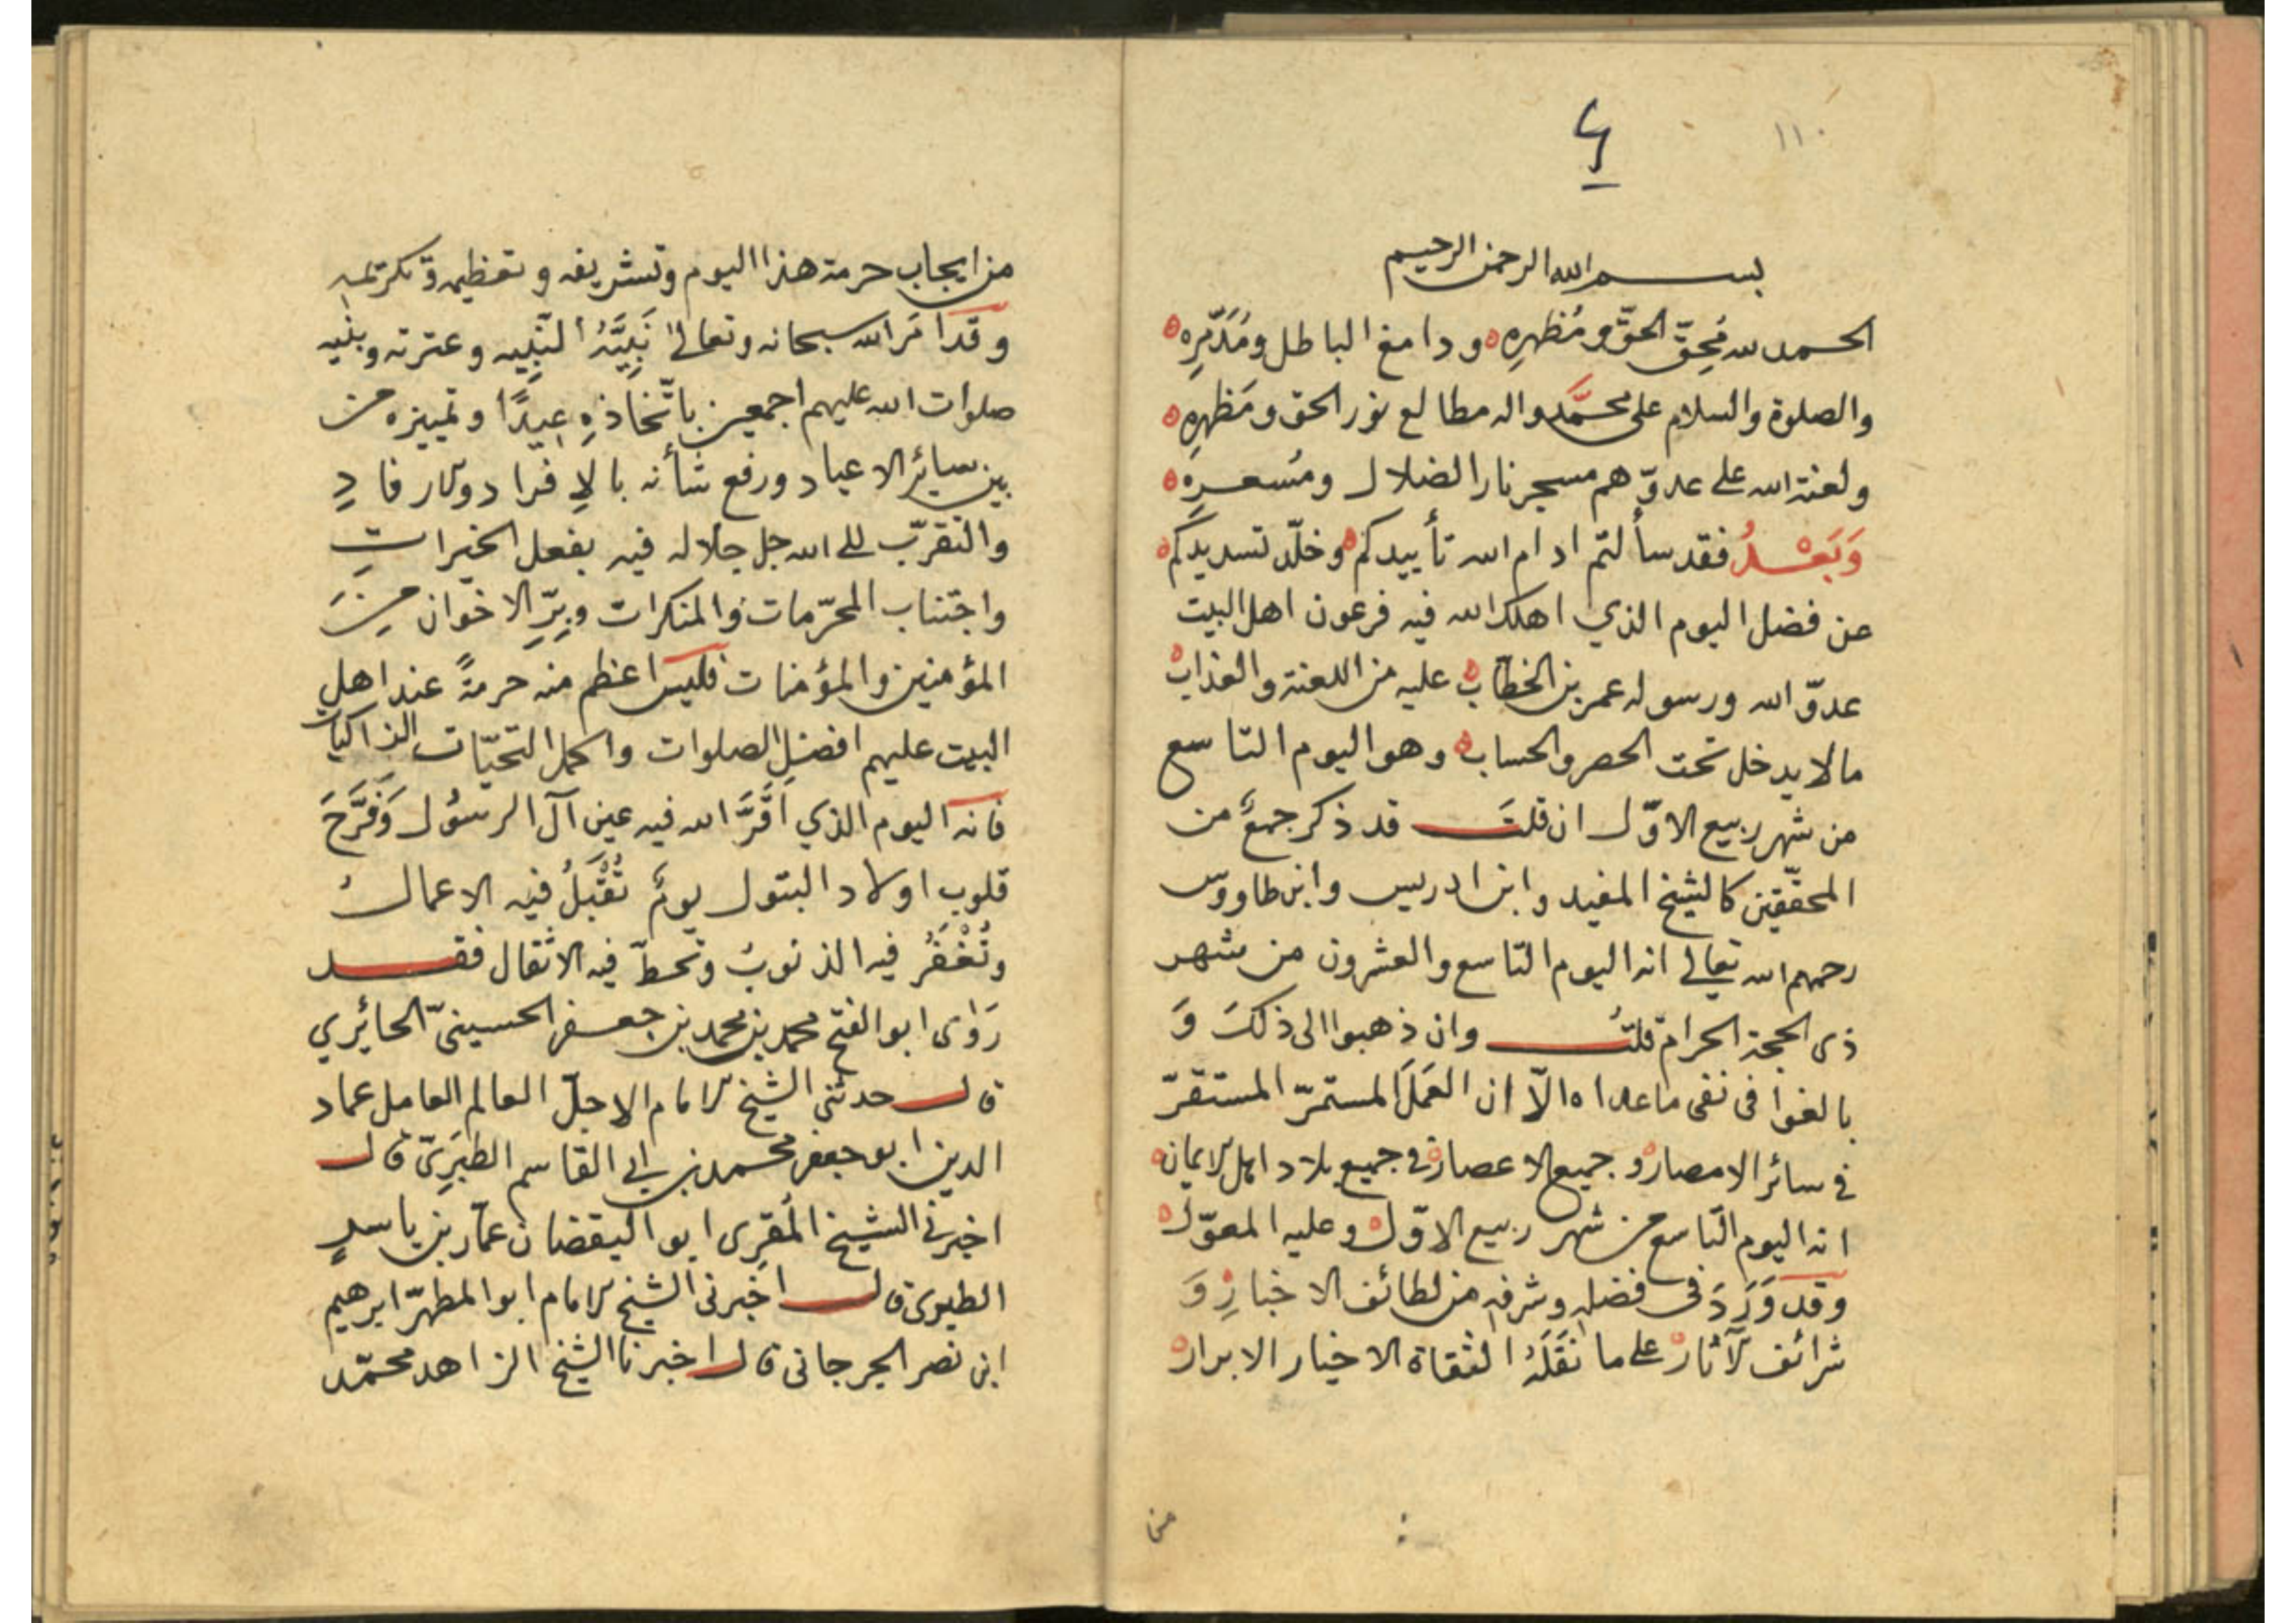 ١١٠
٤
بسم الله الرحمن الرحيم
الحمد لله مُحِقّ الحقّ ومُظهرِه ودامغ الباطل ومُدَمّرِه
والصلوة والسلام على محمَّد واله مطالع نور الحق ومَظهرِه
ولعنة الله على عدوّهم مسجر نار الضلال ومُسعرِه
وَبَعْدُ فقد سألتم ادام الله تأييدكم وخلّد تسديدكم
عن فضل اليوم الذي اهلك الله فيه فرعون اهل البيت
عدوّ الله ورسوله عمر بن الخطاب عليه من اللعنة والعذاب
مالا يدخل تحت الحصر والحساب وهو اليوم التاسع
من شهر ربيع الاوّل ان قلتَ قد ذكر جمعٌ من
المحقّقين كالشيخ المفيد وابن ادريس وابن طاووس
رحمهم الله تعالى انه اليوم التاسع والعشرون من شهر
ذى الحجة الحرام قلتُ وان ذهبوا الى ذلكَ وَ
بالغوا فى نفى ما عداه الّا ان العَمَل المستمرّ المستقرّ
في سائر الامصار وجميع الاعصار في جميع بلاد اهل الايمان
انه اليوم التاسع من شهر ربيع الاوّل وعليه المعوّل
وقد وَرَدَ فى فضلهِ وشرفهِ من لطائف الاخبارِ وَ
شرائف الآثار على ما نقَلَهُ الثقاة الاخيار الابرار
من
من ايجاب حرمة هذا اليوم وتشريفه وتعظيمه وتكريمه
وقد امَر الله سبحانه وتعالى نَبِيَّهُ النَّبِيه وعترته وبنيه
صلوات الله عليهم اجمعين باتّخاذهِ عيدًا وتمييزه من
بين سائر الاعياد ورفع شأنه بالاِفراد والارفادِ
والتقرّب الى الله جل جلاله فيه بفعل الخيراتِ
واجتناب المحرّمات والمنكرات وبِرّ الاخوان منَ
المؤمنين والمؤمنات فليس اعظم منه حرمةً عند اهل
البيت عليهم افضل الصلوات واكمل التحيّات الزاكيات
فانه اليوم الذي اَقَرَّ الله فيه عين آل الرسُول وَفَرَّحَ
قلوب اولاد البتول يومٌ تُقْبَلُ فيه الاعمالُ
وتُغْفَرُ فيه الذنوبُ وتحطّ فيه الاثقال فقد
رَوَاى ابو الفتح محمد بن محمد بن جعفر الحسينىّ الحائري
قال حدثنى الشيخ الامام الاجلّ العالم العامل عماد
الدين ابو جعفر محمد بن ابي القاسم الطبَرِىّ قال
اخبرني الشيخ المُقرِى ابو اليقضان عمّار بن ياسرٍ
الطبوى قال اخبرنى الشيخ الامام ابو المطهّر ابرهيم
ابن نصر الجرجانى قال اخبرنا الشيخ الزاهد محمّد